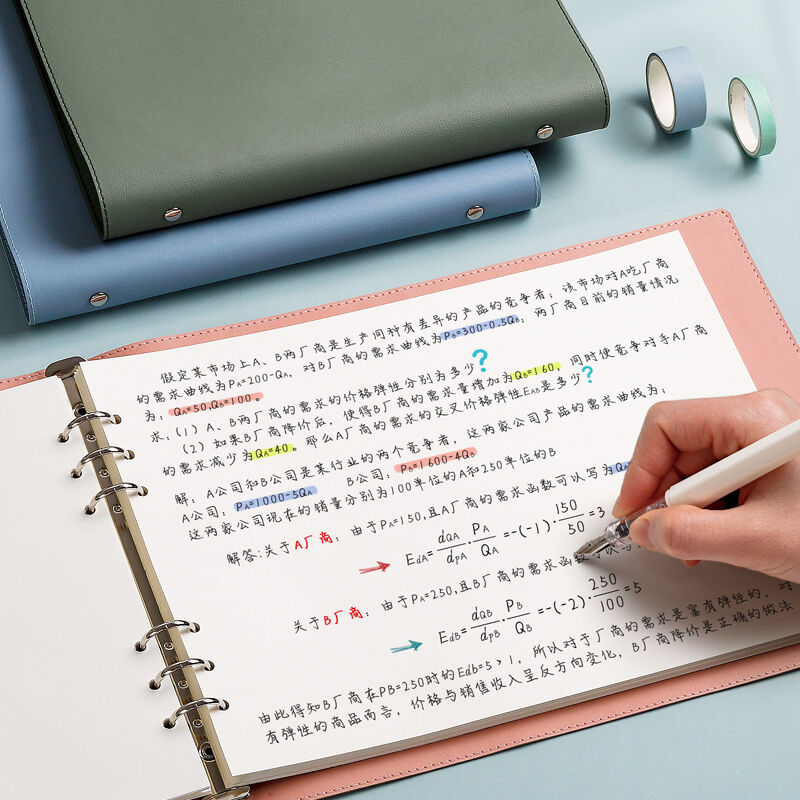 假定某市场上A、B两厂商是生产同种有差异的产品的竞争者；该市场对A吃厂商
的需求曲线为PA=200-QA，对B厂商的需求曲线为PB=300-0.5QB；两厂商目前的销量情况
为：QA=50,QB=100。
求：(1) A、B两厂商的需求的价格弹性分别为多少？
(2) 如果B厂商降价后，使得B厂商的需求量增加为QB=160，同时使竞争对手A厂商
的需求减少为QA=40。那么A厂商的需求的交叉价格弹性EAB是多少？
解：A公司和B公司是某行业的两个竞争者，这两家公司产品的需求曲线为；
A公司：PA=1000-5QA B公司：PB=1600-4QB
这两家公司现在的销量分别为100单位的A和250单位的B
解答：关于A厂商：由于PA=150,且A厂商的需求函数可以写为QA
EdA=dQA/dPA·PA/QA=-(-1)·150/50=3
关于B厂商：由于PA=250,且B厂商的需求函数可以写
EdB=dQB/dPB·PB/QB=-(-2)·250/100=5
由此得知B厂商在PB=250时的Edb=5>1，所以对于厂商的需求是富有弹性的，对
有弹性的商品而言，价格与销售收入呈反方向变化，B厂商降价是正确的做法